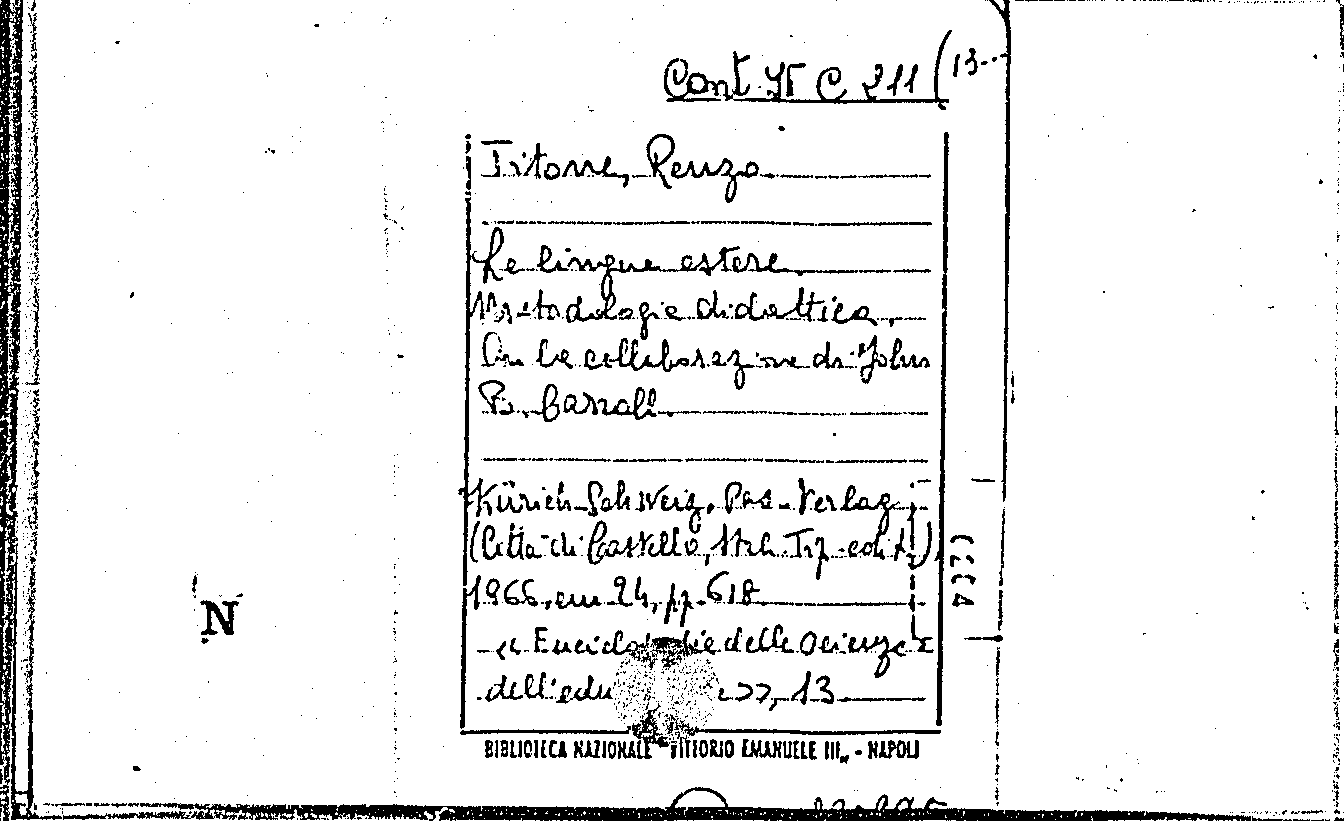 Cont. C 211 (13
Titone, Renzo.
Le lingue estere.
Metodologia didattica.
Con la collaborazione di John
B. Carroll.
Zürich-Schweiz, Pas-Verlag
(Città di Castello, Stab. Tip. edit.),
1966, cm 24, pp. 618
N
delle Scienze
dell' >>, 13
BIBLIOTECA NAZIONALE "VITTORIO EMANUELE III„ - NAPOLI